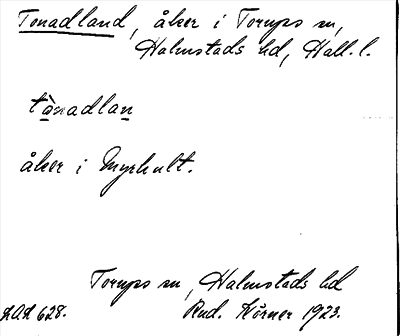 Tonadland, åker i Torups sn,
Halmstads hd, Hall. l.
tònadlan
åker i Myrhult.
Torups sn, Halmstads hd
LAL 628. Rud. Körner 1923.